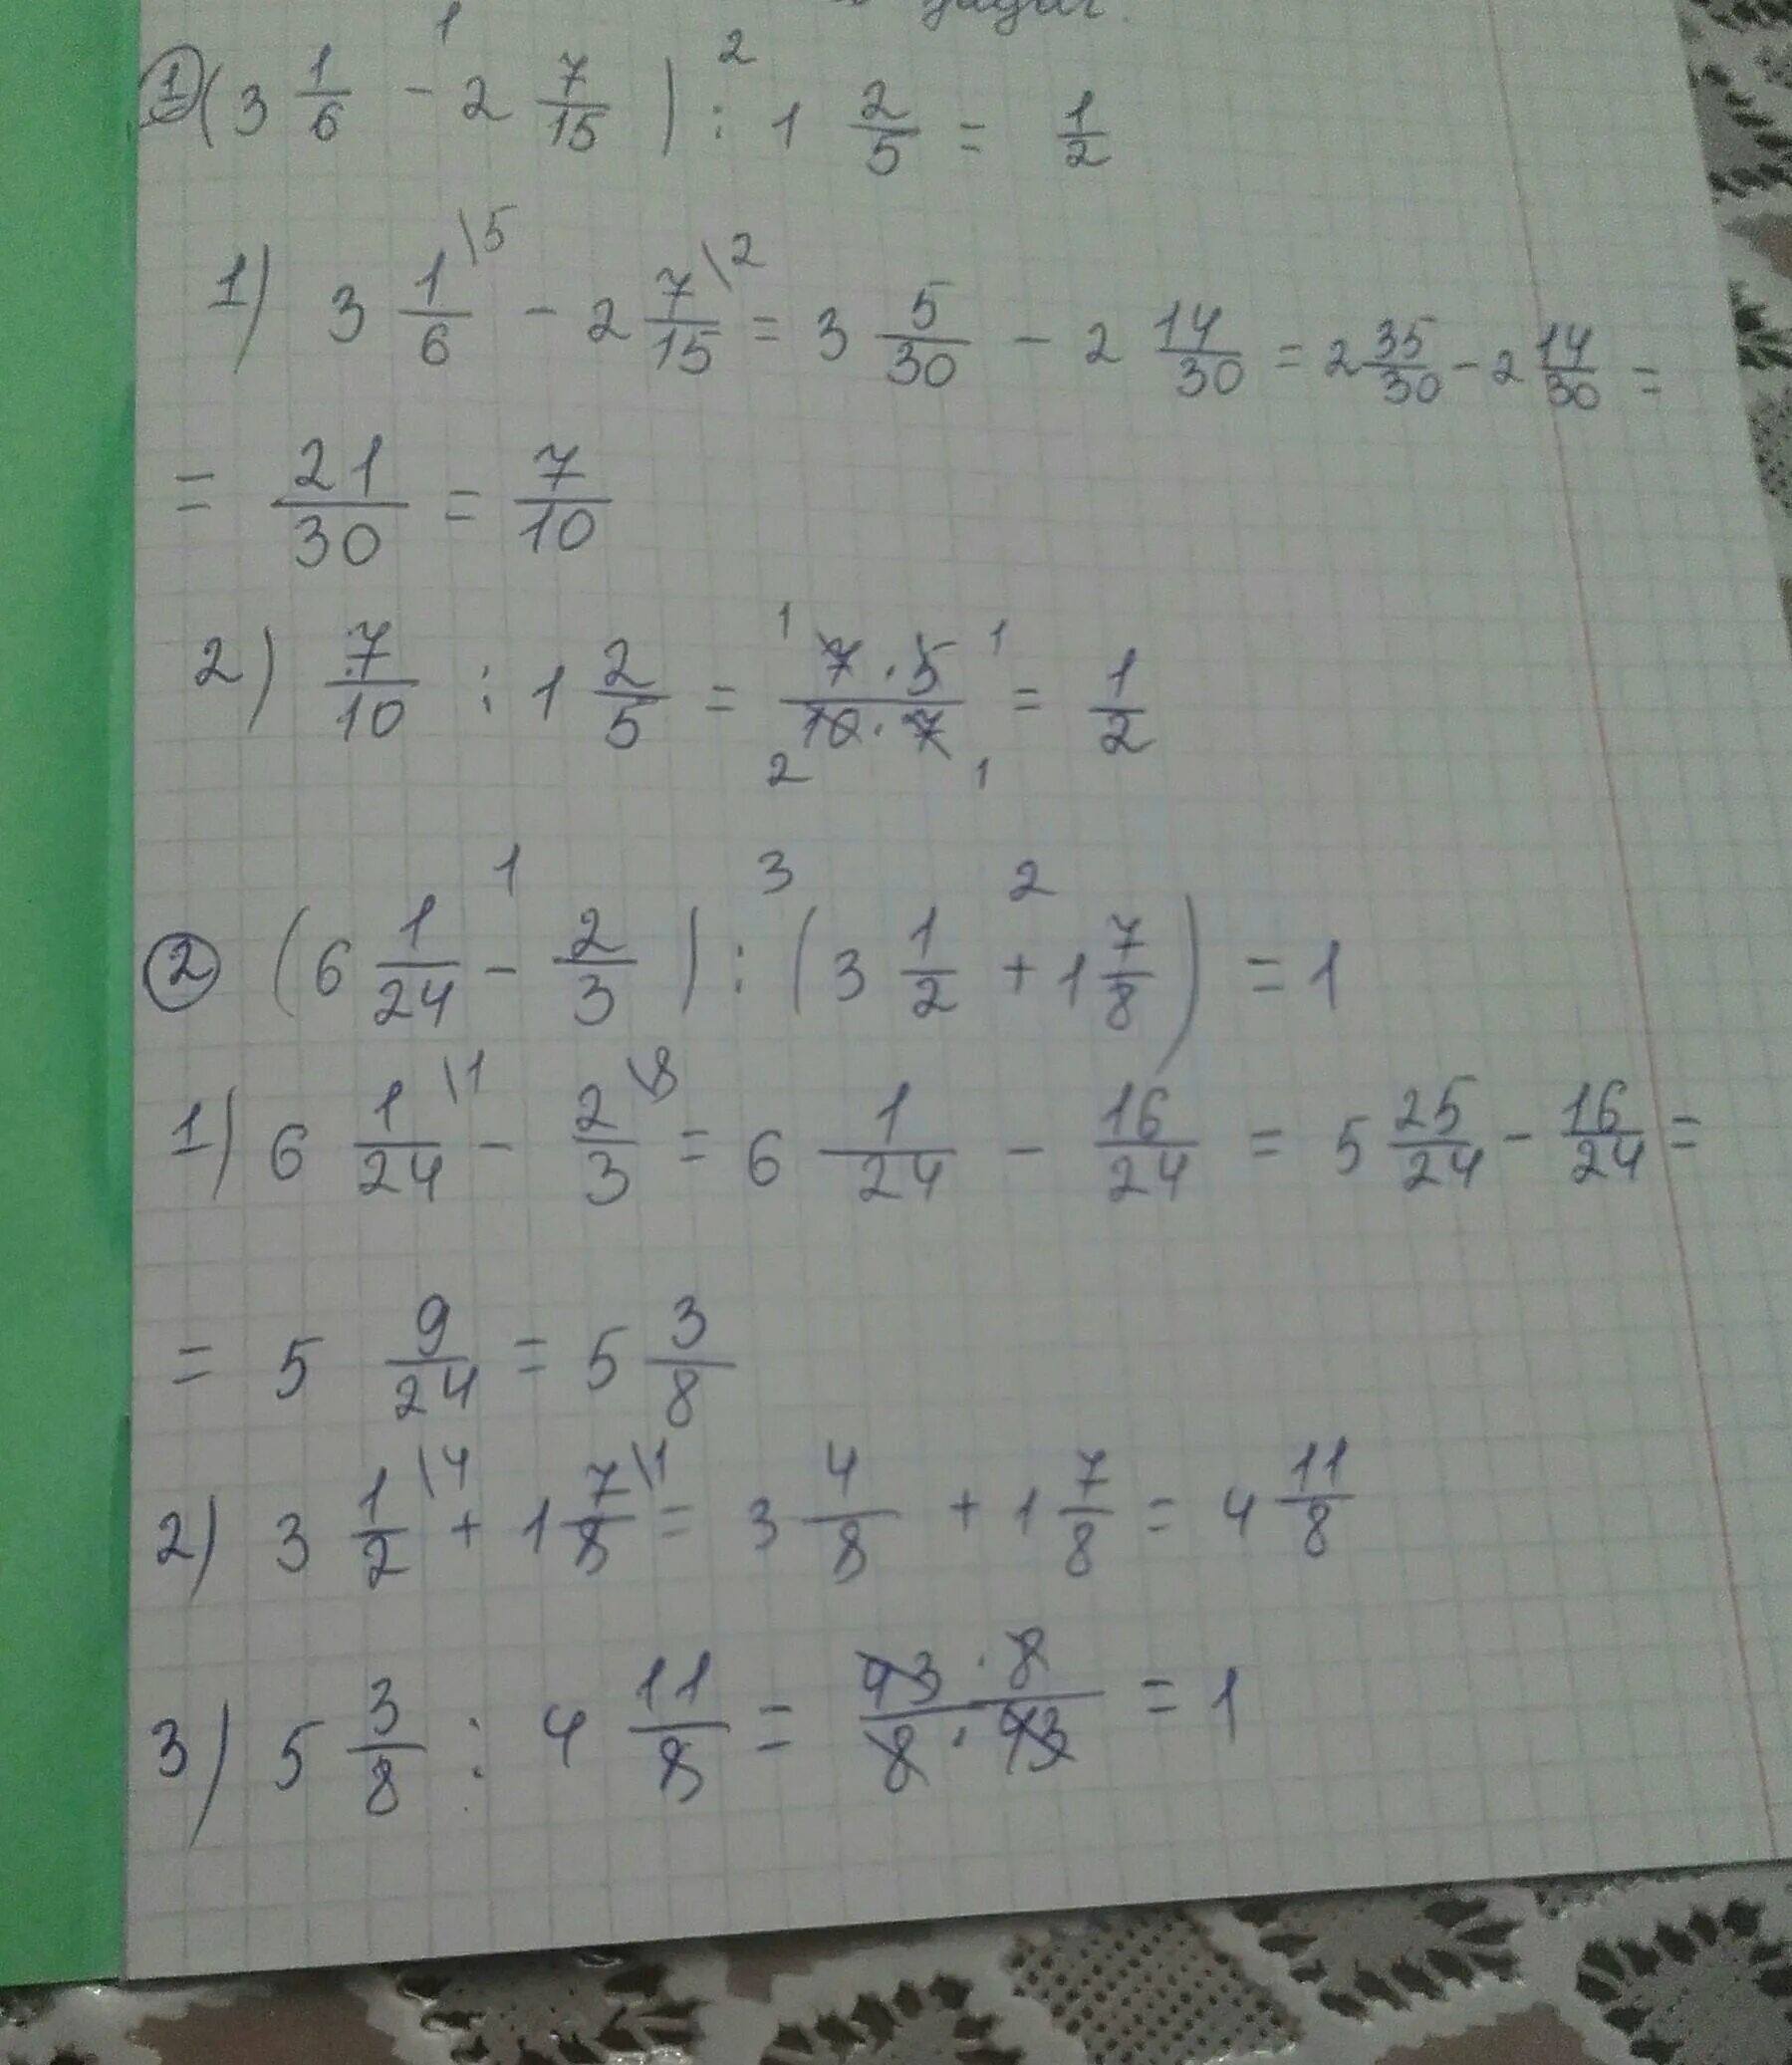 задач.
① (3 1/6 - 2 7/15) : 1 2/5 = 1/2
1) 3 1/6 \5 - 2 7/15 \2 = 3 5/30 - 2 14/30 = 2 35/30 - 2 14/30 =
= 21/30 = 7/10
2) 7/10 : 1 2/5 = 7·5/10·7 = 1/2
② (6 1/24 - 2/3) : (3 1/2 + 1 7/8) = 1
1) 6 1/24 \1 - 2/3 \8 = 6 1/24 - 16/24 = 5 25/24 - 16/24 =
= 5 9/24 = 5 3/8
2) 3 1/2 \4 + 1 7/8 \1 = 3 4/8 + 1 7/8 = 4 11/8
3) 5 3/8 : 4 11/8 = 43·8/8·43 = 1